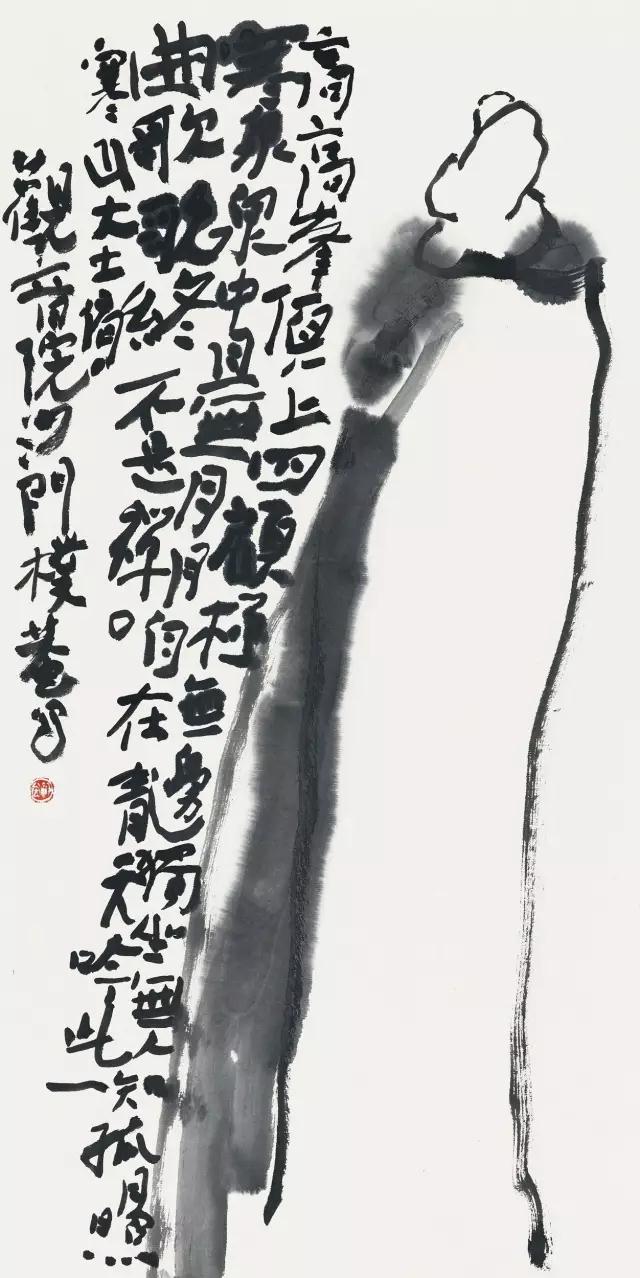 高高峯頂上四顧極無邊獨坐無人知孤月照
寒泉泉中且無月月自在青天吟此一
曲歌歌終不是禪
寒山大士偈
觀音院沙門樸菴